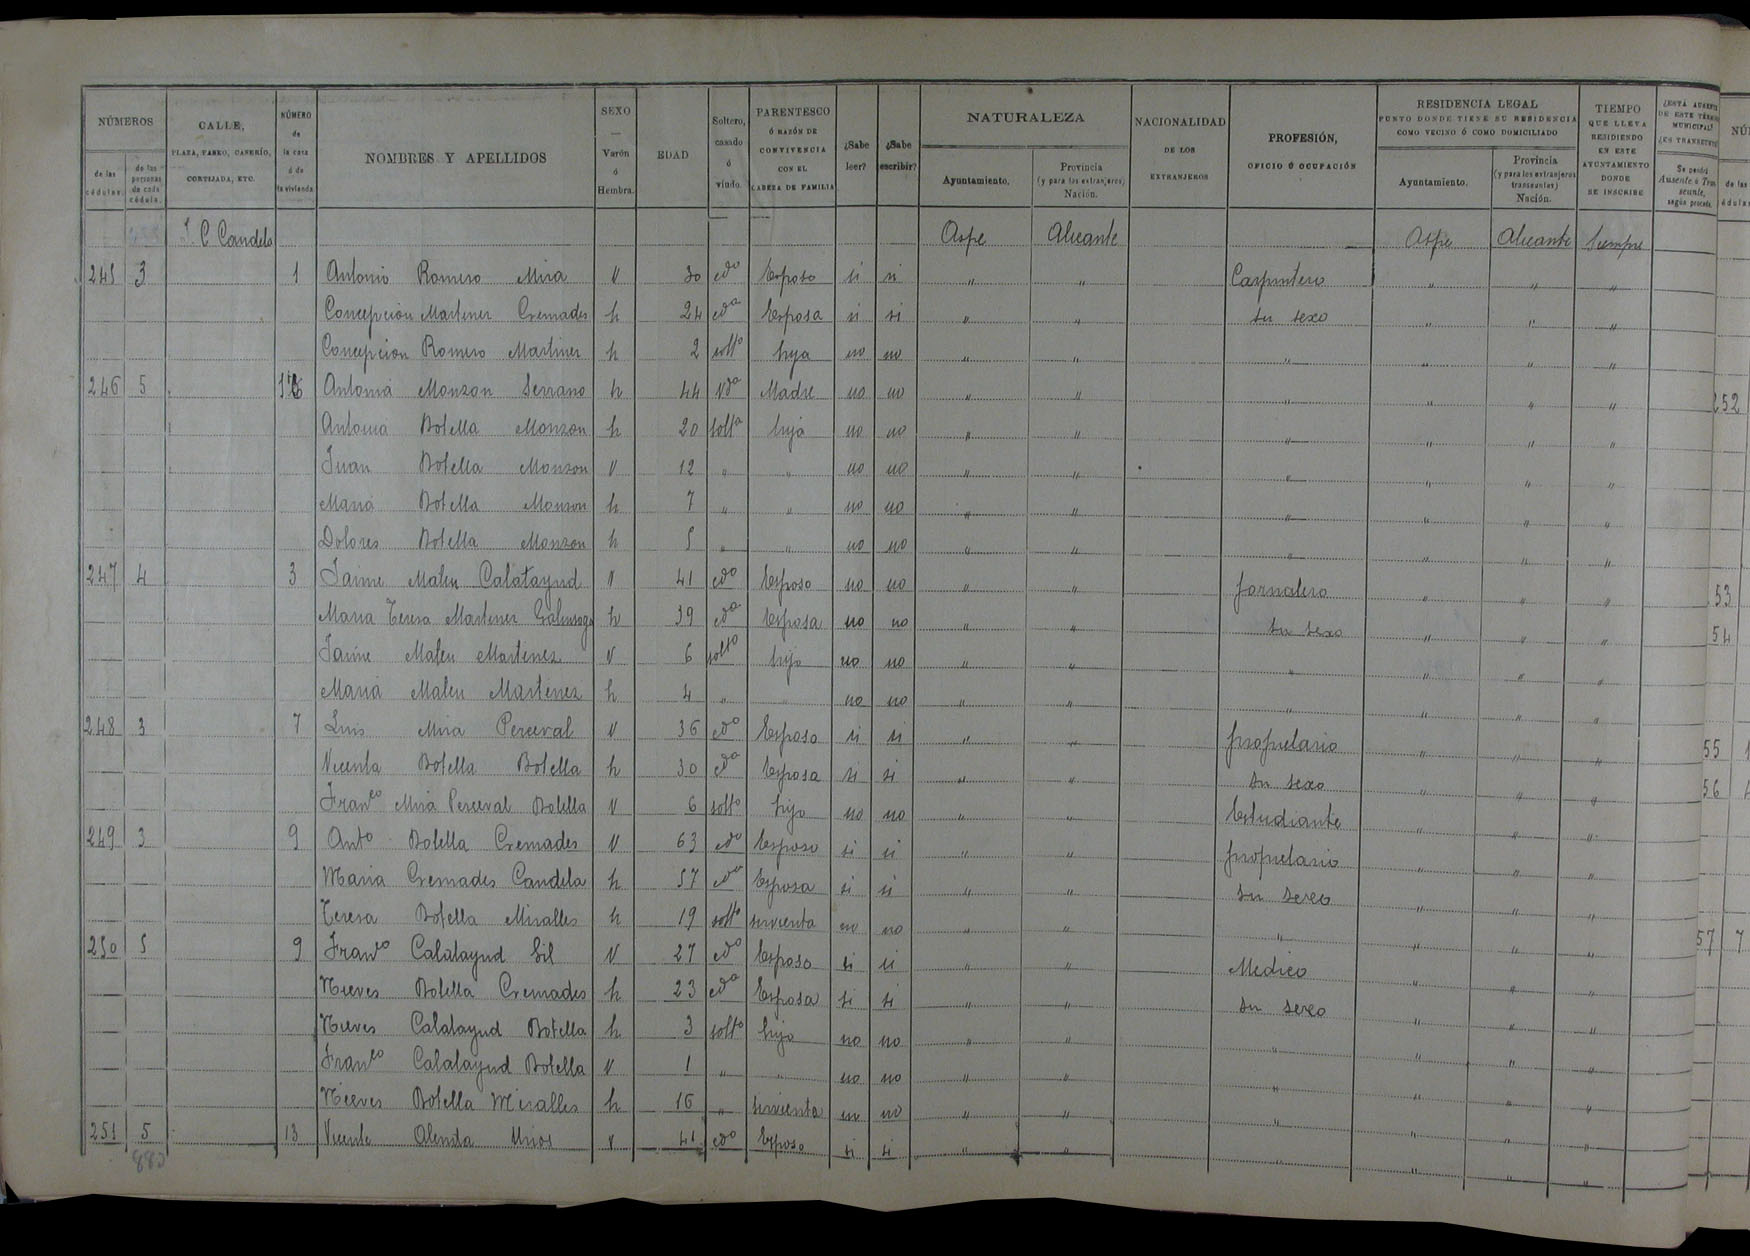 NÚMEROS
de las cédulas.
de las personas de cada cédula.
CALLE,
PLAZA, PASEO, CASERÍO, CORTIJADA, ETC.
NÚMERO de la casa ó de la vivienda
NOMBRES Y APELLIDOS
SEXO — Varón ó Hembra.
EDAD
Soltero, casado ó viudo.
PARENTESCO Ó RAZÓN DE CONVIVENCIA CON EL CABEZA DE FAMILIA
¿Sabe leer?
¿Sabe escribir?
NATURALEZA
Ayuntamiento.
Provincia (y para los extranjeros) Nación.
NACIONALIDAD DE LOS EXTRANJEROS
PROFESIÓN, OFICIO Ó OCUPACIÓN
RESIDENCIA LEGAL
PUNTO DONDE TIENE SU RESIDENCIA COMO VECINO Ó COMO DOMICILIADO
Ayuntamiento.
Provincia (y para los extranjeros transeuntes) Nación.
TIEMPO QUE LLEVA RESIDIENDO EN ESTE AYUNTAMIENTO DONDE SE INSCRIBE
Candela Aspe Alicante Aspe Alicante Siempre
245 3 1 Antonio Romero Mira V 30 cdo Esposo si si " " Carpintero " " "
Concepcion Martinez Cremades h 24 cda Esposa si si " " su sexo " " "
Concepcion Romero Martinez h 2 solto hija no no " " " " " "
246 5 Antonia Monzon Serrano h 44 Vda Madre no no " " " " " "
Antonia Botella Monzon h 20 solta hija no no " " " " " "
Juan Botella Monzon V 12 " " no no " " " " " "
Maria Botella Monzon h 7 " " no no " " " " " "
Dolores Botella Monzon h 5 " " no no " " " " " "
247 4 3 Jaime Mateu Calatayud V 41 cdo Esposo no no " " Jornalero " " "
Maria Teresa Martinez h 39 cda Esposa no no " " su sexo " " "
Jaime Mateu Martinez V 6 solto hijo no no " " " " " "
Maria Mateu Martinez h 4 " " no no " " " " " "
248 3 7 Luis Mira Perceval V 36 cdo Esposo si si " " propietario " " "
Vicenta Botella Botella h 30 cda Esposa si si " " su sexo " " "
Franco Mira Perceval Botella V 6 solto hijo no no " " Estudiante " " "
249 3 9 Anto Botella Cremades V 63 cdo Esposo si si " " propietario " " "
Maria Cremades Candela h 57 cda Esposa si si " " su sexo " " "
Teresa Botella Miralles h 19 solto sirvienta no no " " " " " "
250 5 9 Franco Calatayud Gil V 27 cdo Esposo si si " " Medico " " "
Nieves Botella Cremades h 23 cda Esposa si si " " su sexo " " "
Nieves Calatayud Botella h 3 solto hija no no " " " " " "
Franco Calatayud Botella V 1 " " no no " " " " " "
Nieves Botella Miralles h 16 " sirvienta no no " " " " " "
251 5 13 Vicente V 41 cdo Esposo si si " " " " "